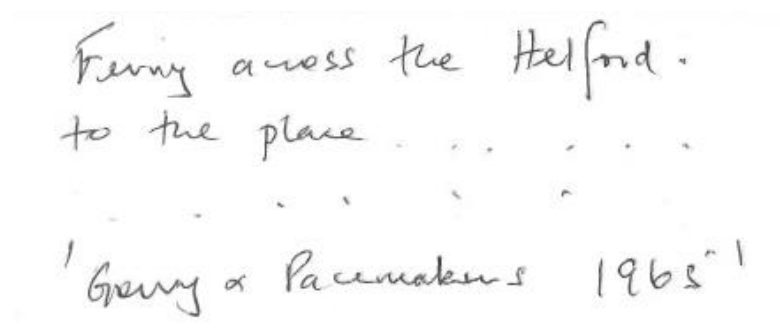 Ferry across the Helford.
to the place . . . . . . .
. . . . . . .
'Gerry & Pacemakers 1965'